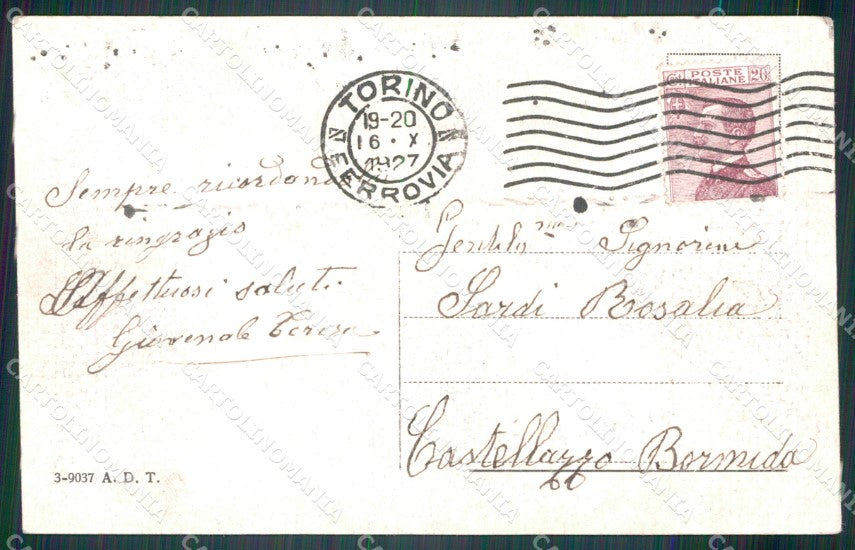 TORINO
19-20
16 · X
1927
FERROVIA
POSTE
ITALIANE
20
Sempre ricordand
la ringrazio
Affettuosi saluti
Giovenale Teresa
Gentil.ma Signorina
Sardi Rosalia
Castellazzo Bormida
3-9037 A. D. T.
CARTOLINOMANIA